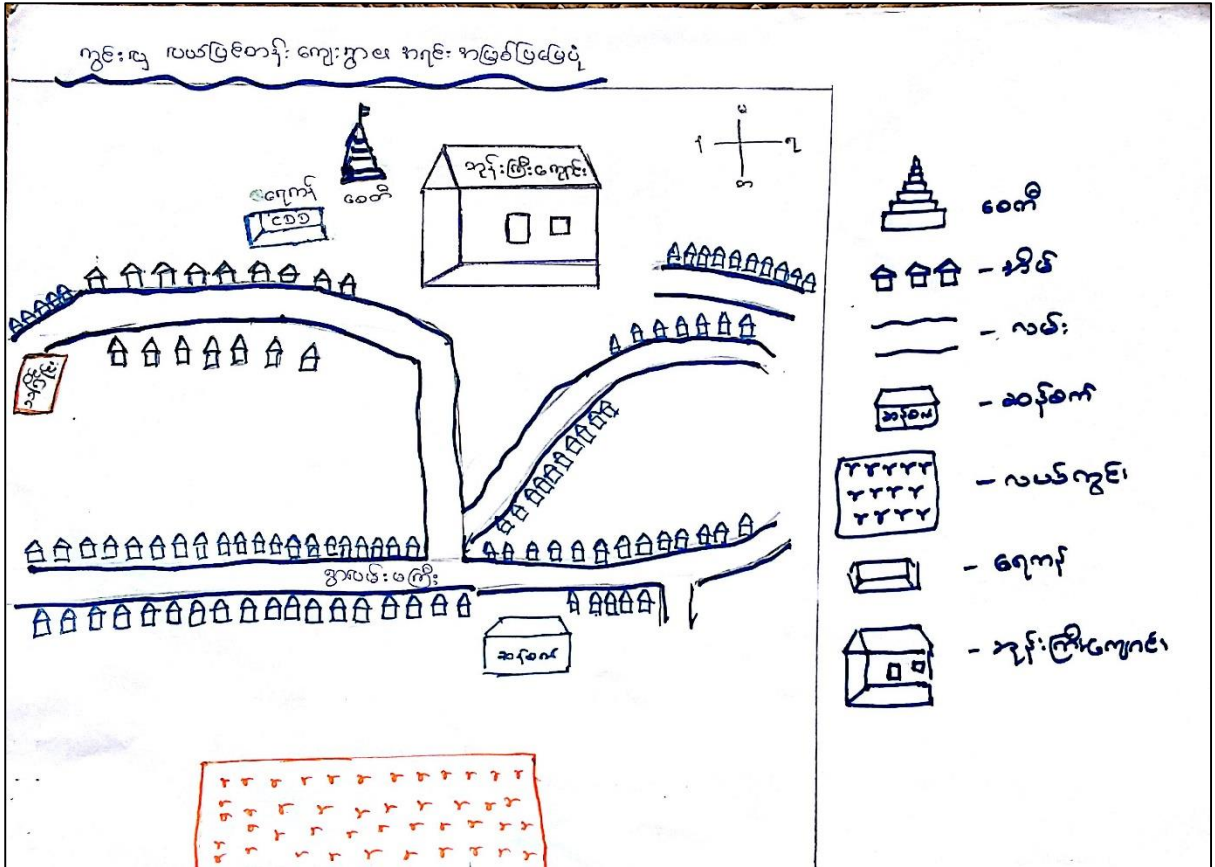 ကွင်းလှ လယ်ပြင်တန်း ကျေးရွာ၏ အရင်း အမြစ်ပြမြေပုံ
မ
တ
ဘုန်းကြီးကျောင်း
စေတီ
ရေကန်
CDD
ရွာလမ်းမကြီး
ဆန်စက်
စေတီ
- အိမ်
- လမ်း
ဆန်စက် - ဆန်စက်
- လယ်ကွင်း
- ရေကန်
- ဘုန်းကြီးကျောင်း